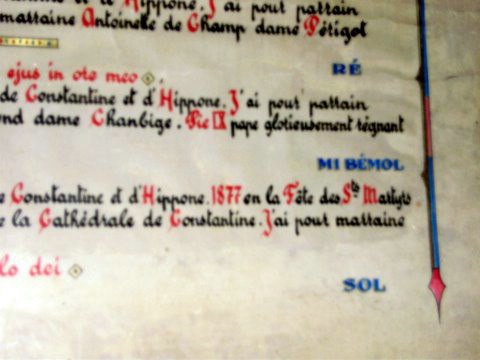 et de Hippone. J'ai pour parrain
marraine Antoinette de Champ dame Périgot
RÉ
ejus in ore meo
de Constantine et d'Hippone. J'ai pour parrain
ond dame Chanbige. Pie IX pape glorieusement régnant
MI BÉMOL
e Constantine et d'Hippone. 1877 en la Fête des Sts Martyrs
e la Cathédrale de Constantine. J'ai pour marraine
lo dei
SOL